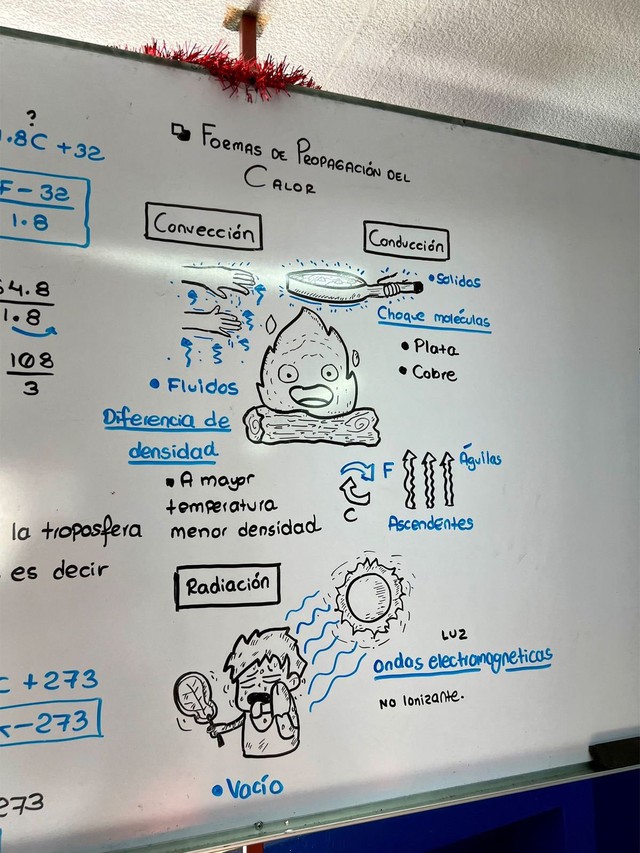 ?
.8C + 32
F - 32
1.8
4.8
1.8
108
3
la troposfera
es decir
C + 273
- 273
273
Formas de Propagación del
Calor
Convección
Fluidos
Diferencia de
densidad
A mayor
temperatura
menor densidad
Conducción
Solidos
Choque moléculas
Plata
Cobre
F
C
Águilas
Ascendentes
Radiación
Luz
Ondas electromagneticas
No Ionizante.
Vacío